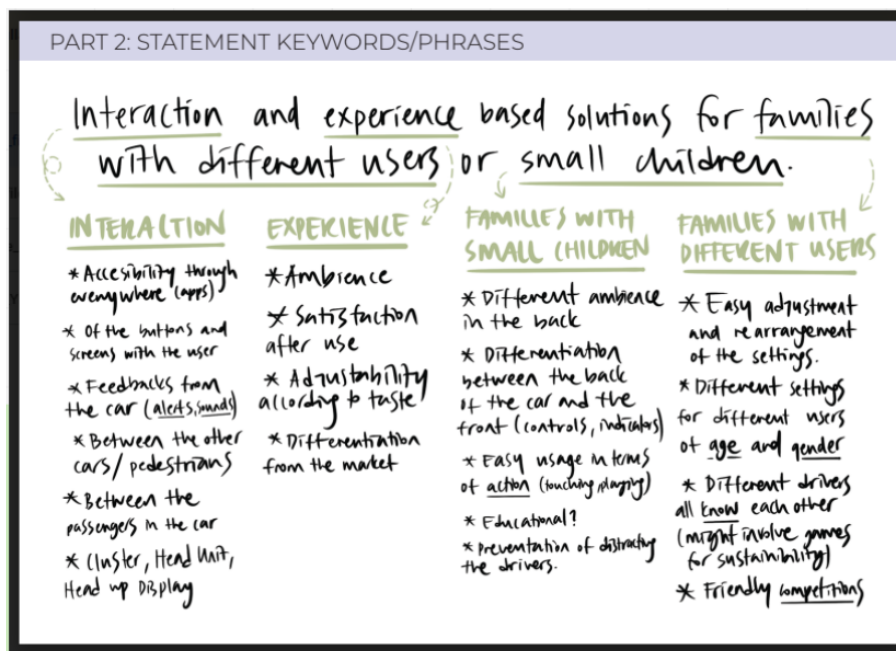 PART 2: STATEMENT KEYWORDS/PHRASES
Interaction and experience based solutions for families
with different users or small children.
INTERACTION
* Accesibility through
everywhere (apps)
* Of the buttons and
screens with the user
* Feedbacks from
the car (alerts, sounds)
* Between the other
cars/pedestrians
* Between the
passengers in the car
* Cluster, Head Unit,
Head up Display
EXPERIENCE
(?)
* Ambience
* Satisfaction
after use
* Adjustability
according to taste
* Differentiation
from the market
FAMILIES WITH
SMALL CHILDREN
* Different ambience
in the back
* Differentiation
between the back
of the car and the
front (controls, indicators)
* Easy usage in terms
of action (touching, playing)
* Educational?
* Prevention of distracting
the drivers.
FAMILIES WITH
DIFFERENT USERS
* Easy adjustment
and rearrangement
of the settings.
* Different settings
for different users
of age and gender
* Different drivers
all know each other
(might involve games
for sustainibility)
* Friendly competitions